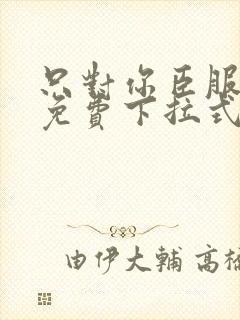 只對你臣服
免費下拉式
由伊大輔 高橋